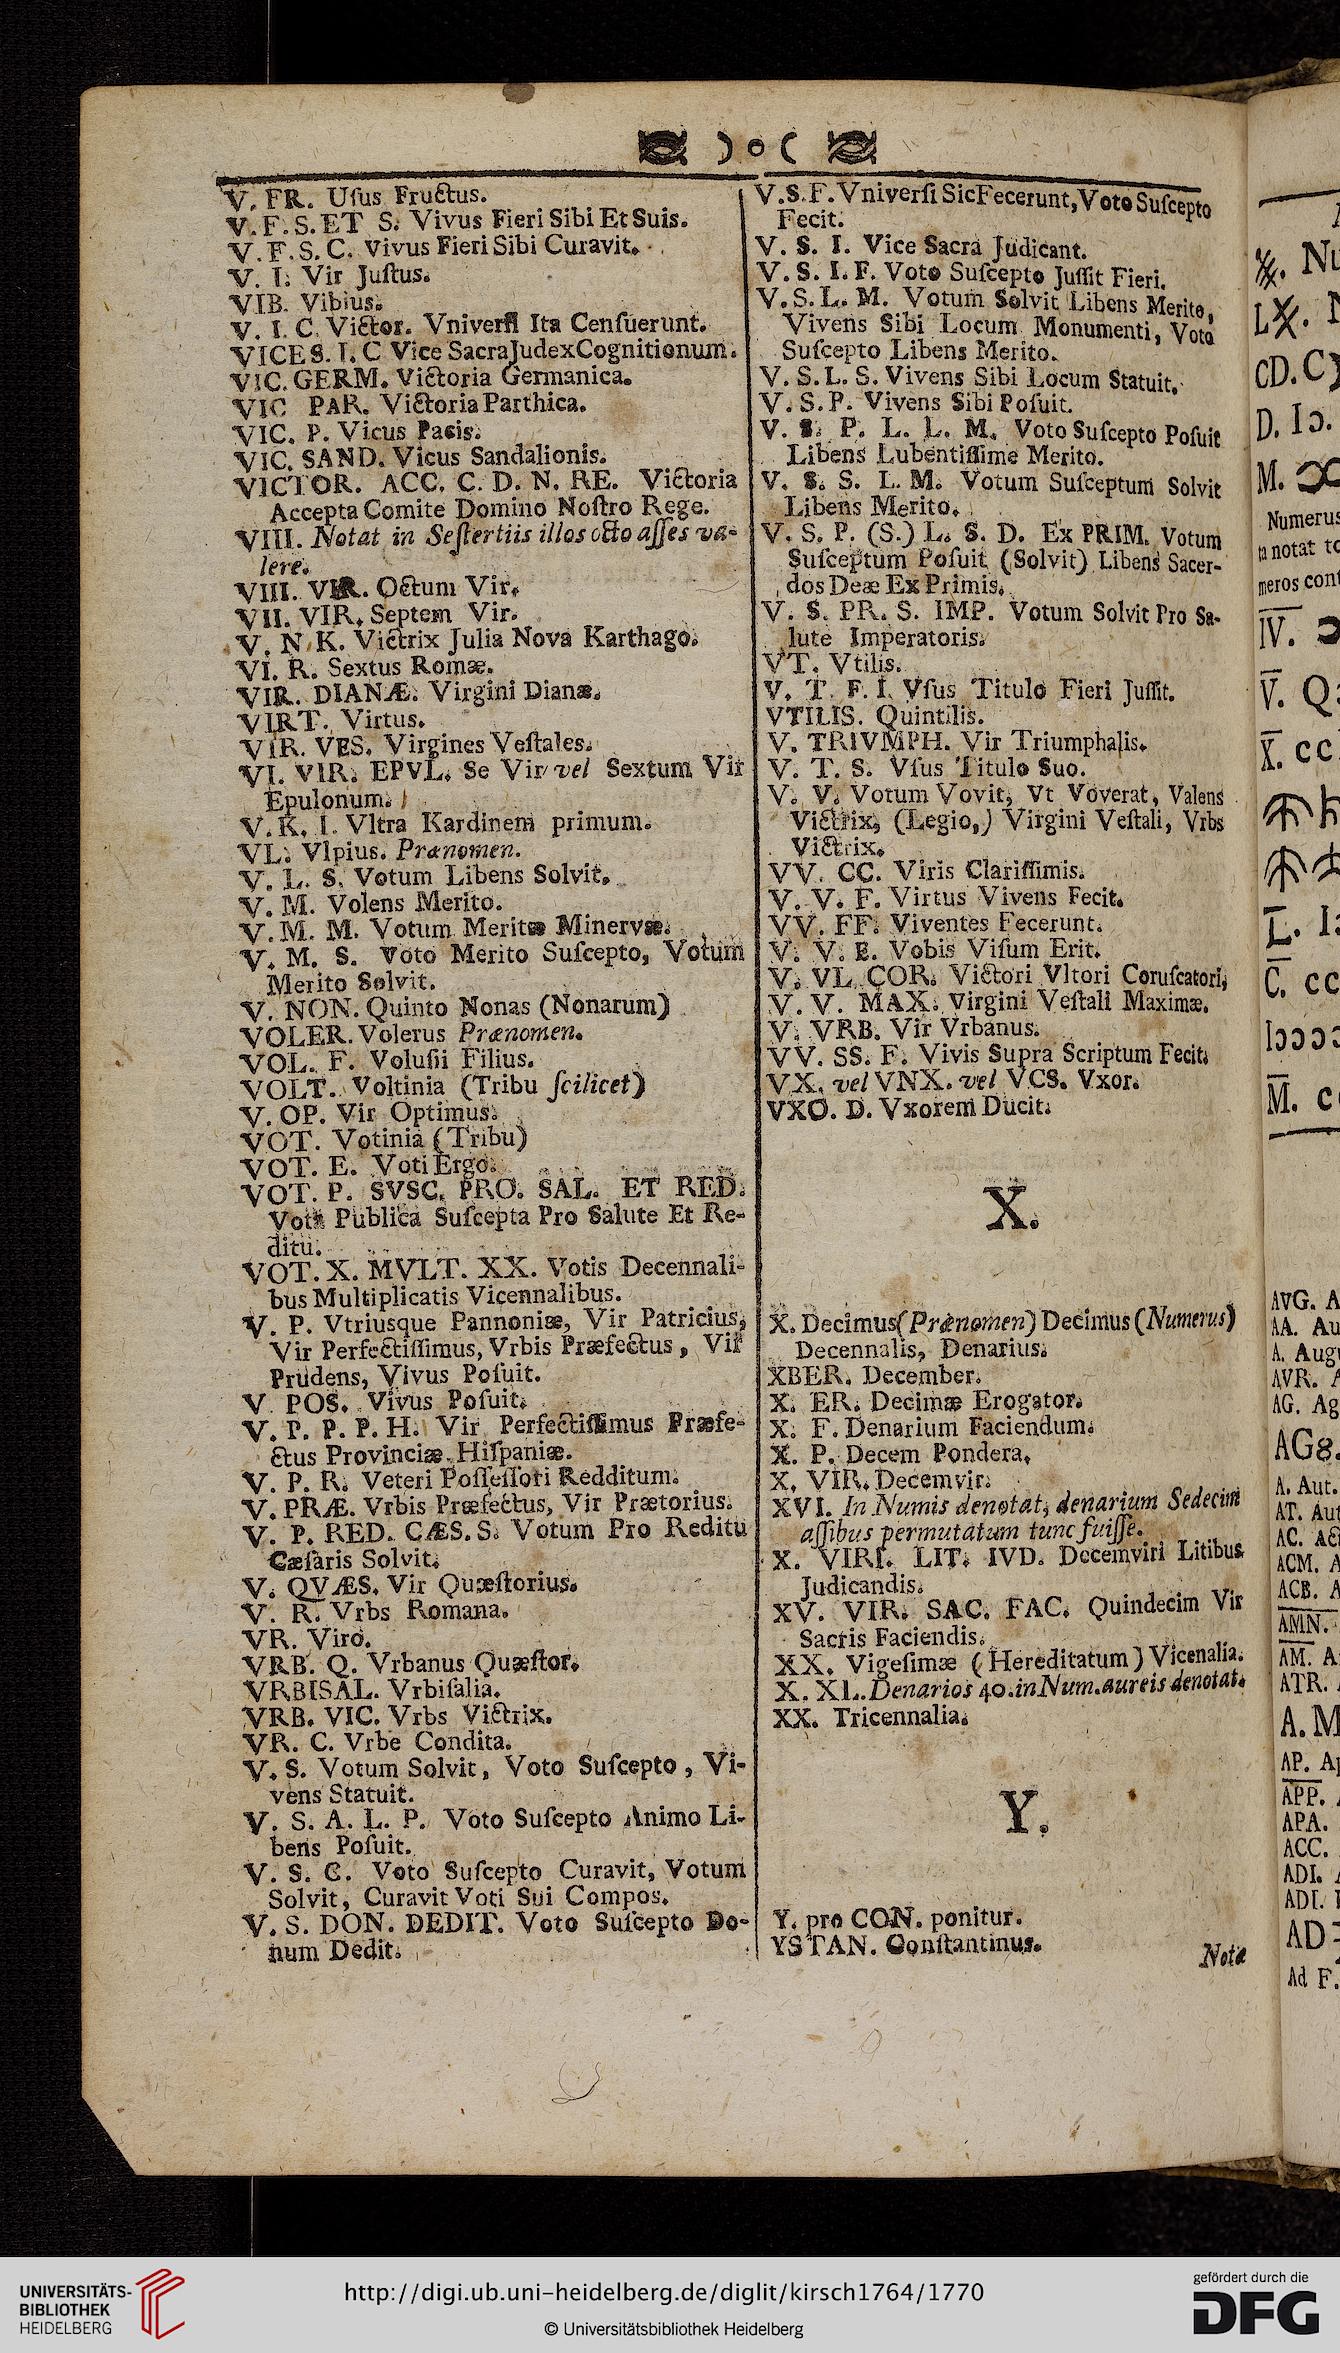 ) o (
V. FR. Uſus Fructus.
V. F. S. ET S. Vivus Fieri Sibi Et Suis.
V. F. S. C. Vivus Fieri Sibi Curavit.
V. I. Vir Juſtus.
VIB. Vibius.
V. I. C. Victor. Vniverſi Ita Cenſuerunt.
VICE S. I. C Vice Sacra Judex Cognitionum.
VIC. GERM. Victoria Germanica.
VIC PAR. Victoria Parthica.
VIC. P. Vicus Pacis.
VIC. SAND. Vicus Sandalionis.
VICTOR. ACC. C. D. N. RE. Victoria
Accepta Comite Domino Noſtro Rege.
VIII. Notat in Seſtertiis illos octo aſſes va-
lere.
VIII. VIR. Octum Vir.
VII. VIR. Septem Vir.
V. N. K. Victrix Julia Nova Karthago.
VI. R. Sextus Romæ.
VIR. DIANÆ. Virgini Dianæ.
VIRT. Virtus.
VIR. VES. Virgines Veſtales.
VI. VIR. EPVL. Se Vir vel Sextum Vir
Epulonum.
V. K. I. Vltra Kardinem primum.
VL. Vlpius. Prænomen.
V. L. S. Votum Libens Solvit.
V. M. Volens Merito.
V. M. M. Votum Meritæ Minervæ.
V. M. S. Voto Merito Suſcepto, Votum
Merito Solvit.
V. NON. Quinto Nonas (Nonarum)
VOLER. Volerus Prænomen.
VOL. F. Voluſii Filius.
VOLT. Voltinia (Tribu ſcilicet)
V. OP. Vir Optimus.
VOT. Votinia (Tribu)
VOT. E. Voti Ergo.
VOT. P. SVSC. PRO. SAL. ET RED.
Vota Publica Suſcepta Pro Salute Et Re-
ditu.
VOT. X. MVLT. XX. Votis Decennali-
bus Multiplicatis Vicennalibus.
V. P. Vtriusque Pannoniæ, Vir Patricius,
Vir Perfectiſſimus, Vrbis Præfectus, Vir
Prudens, Vivus Poſuit.
V POS. Vivus Poſuit.
V. P. P. P. H. Vir Perfectiſſimus Præfe-
ctus Provinciæ Hiſpaniæ.
V. P. R. Veteri Poſſeſſori Redditum.
V. PRÆ. Vrbis Præfectus, Vir Prætorius.
V. P. RED. CÆS. S. Votum Pro Reditu
Cæſaris Solvit.
V. QVÆS. Vir Quæſtorius.
V. R. Vrbs Romana.
VR. Viro.
VRB. Q. Vrbanus Quæſtor.
VRBISAL. Vrbiſalia.
VRB. VIC. Vrbs Victrix.
VR. C. Vrbe Condita.
V. S. Votum Solvit, Voto Suſcepto, Vi-
vens Statuit.
V. S. A. L. P. Voto Suſcepto Animo Li-
bens Poſuit.
V. S. C. Voto Suſcepto Curavit, Votum
Solvit, Curavit Voti Sui Compos.
V. S. DON. DEDIT. Voto Suſcepto Do-
num Dedit.
V. S. F. Vniverſi Sic Fecerunt, Voto Suſcepto
Fecit.
V. S. I. Vice Sacra Judicant.
V. S. I. F. Voto Suſcepto Juſſit Fieri.
V. S. L. M. Votum Solvit Libens Merito,
Vivens Sibi Locum Monumenti, Voto
Suſcepto Libens Merito.
V. S. L. S. Vivens Sibi Locum Statuit.
V. S. P. Vivens Sibi Poſuit.
V. S. P. L. L. M. Voto Suſcepto Poſuit
Libens Lubentiſſime Merito.
V. S. S. L. M. Votum Suſceptum Solvit
Libens Merito.
V. S. P. (S.) L. S. D. EX PRIM. Votum
Suſceptum Poſuit (Solvit) Libens Sacer-
dos Deæ Ex Primis.
V. S. PR. S. IMP. Votum Solvit Pro Sa-
lute Imperatoris.
VT. Vtilis.
V. T. F. I. Vſus Titulo Fieri Juſſit.
VTILIS. Quintilis.
V. TRIVMPH. Vir Triumphalis.
V. T. S. Vſus Titulo Suo.
V. V. Votum Vovit, Vt Voverat, Valens
Victrix, (Legio,) Virgini Veſtali, Vrbs
Victrix.
VV. CC. Viris Clariſſimis.
V. V. F. Virtus Vivens Fecit.
VV. FF. Viventes Fecerunt.
V. V. E. Vobis Viſum Erit.
V. VL. COR. Victori Vltori Coruſcatori,
V. V. MAX. Virgini Veſtali Maximæ.
V. VRB. Vir Vrbanus.
VV. SS. F. Vivis Supra Scriptum Fecit.
VX. vel VNX. vel VCS. Vxor.
VXO. D. Vxorem Ducit.
X.
X. Decimus (Prænomen) Decimus (Numerus)
Decennalis, Denarius.
XBER. December.
X. ER. Decimæ Erogator.
X. F. Denarium Faciendum.
X. P. Decem Pondera.
X. VIR. Decemvir.
XVI. In Numis denotat, denarium Sedecim
aſſibus permutatum tunc fuiſſe.
X. VIRI. LIT. IVD. Decemviri Litibus
Judicandis.
XV. VIR. SAC. FAC. Quindecim Vir
Sacris Faciendis.
XX. Vigeſimæ (Hereditatum) Vicenalia.
X. XL. Denarios 40. in Num. aureis denotat.
XX. Tricennalia.
Y.
Y. pro CON. ponitur.
YSTAN. Conſtantinus.
Notæ
LX.
CD.
D. IↃ.
M.
Numerus
notat
meros
IV.
V. Q
X. CC
L.
C. CC
M.
AVG. A
AA. Au
A. Aug
AVR.
AG. Ag
AG8.
A. Aut.
AT. Aut
AC.
ACM. A
ACB. A
AMN.
AM. A
ATR.
A. M
AP.
APP.
APA.
ACC.
ADI.
ADI.
AD
Ad F.
UNIVERSITÄTS-
BIBLIOTHEK
HEIDELBERG
http://digi.ub.uni-heidelberg.de/diglit/kirsch1764/1770
© Universitätsbibliothek Heidelberg
gefördert durch die
DFG